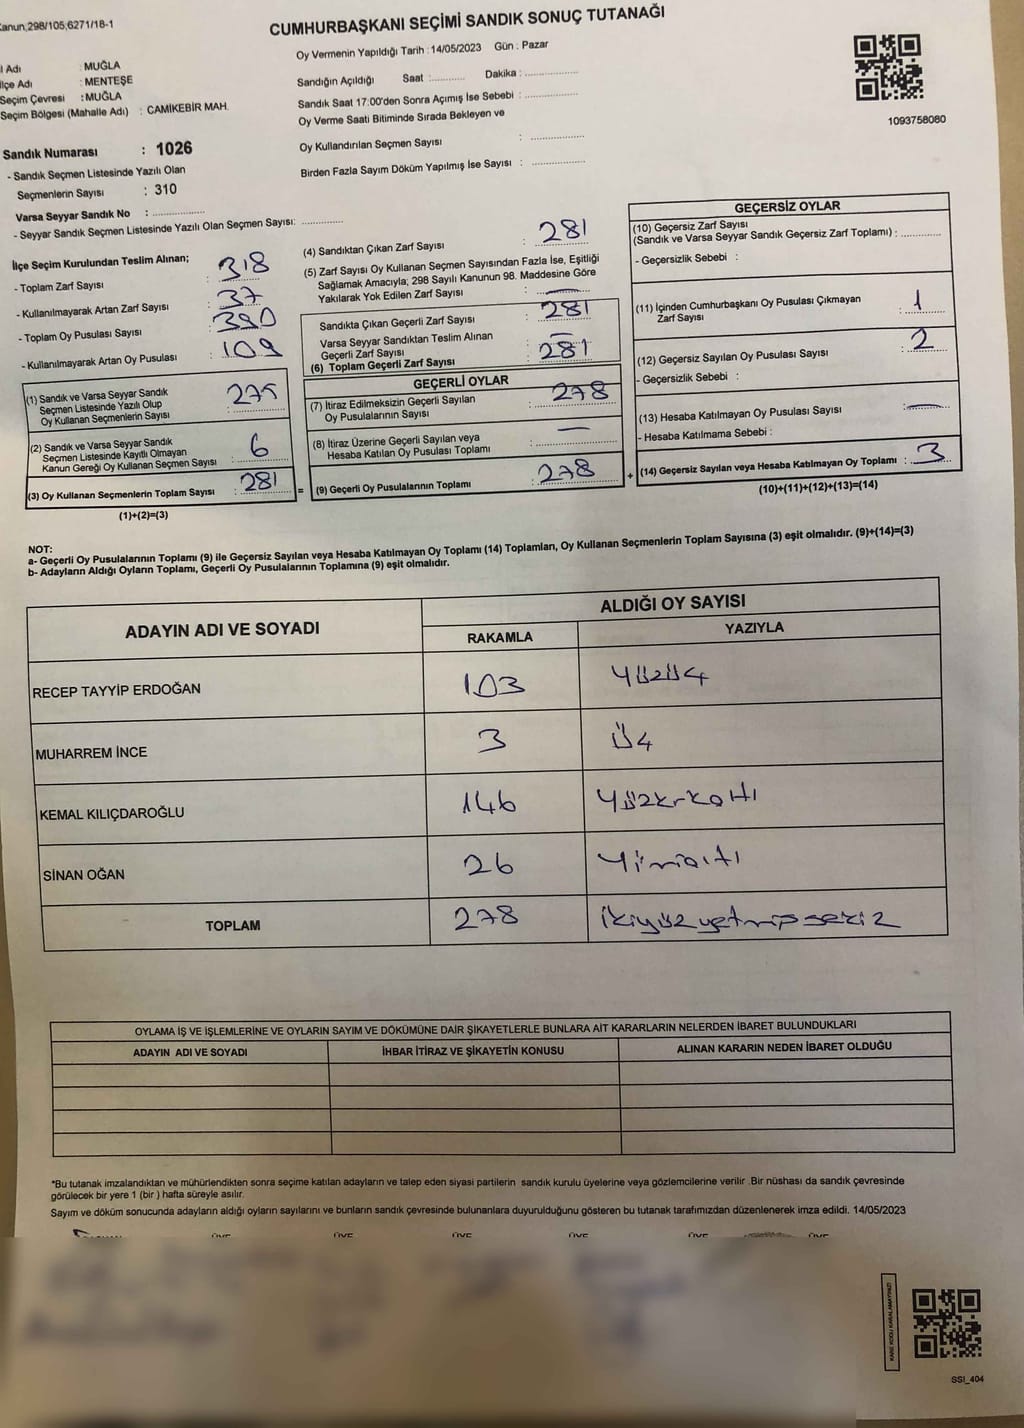 Kanun;298/105;6271/18-1
CUMHURBAŞKANI SEÇİMİ SANDIK SONUÇ TUTANAĞI
Oy Vermenin Yapıldığı Tarih : 14/05/2023 Gün : Pazar
l Adı : MUĞLA
lçe Adı : MENTEŞE
Seçim Çevresi : MUĞLA
Seçim Bölgesi (Mahalle Adı) : CAMİKEBİR MAH.
Sandığın Açıldığı Saat :........... Dakika :................
Sandık Saat 17:00'den Sonra Açımış İse Sebebi :................
Oy Verme Saati Bitiminde Sırada Bekleyen ve
Oy Kullandırılan Seçmen Sayısı :................
Birden Fazla Sayım Döküm Yapılmış İse Sayısı :................
1093758080
Sandık Numarası : 1026
- Sandık Seçmen Listesinde Yazılı Olan
Seçmenlerin Sayısı : 310
Varsa Seyyar Sandık No :................
- Seyyar Sandık Seçmen Listesinde Yazılı Olan Seçmen Sayısı: ............
İlçe Seçim Kurulundan Teslim Alınan;
- Toplam Zarf Sayısı : 318
- Kullanılmayarak Artan Zarf Sayısı : 37
- Toplam Oy Pusulası Sayısı : 390
- Kullanılmayarak Artan Oy Pusulası : 109
(1) Sandık ve Varsa Seyyar Sandık
Seçmen Listesinde Yazılı Olup
Oy Kullanan Seçmenlerin Sayısı : 275
(2) Sandık ve Varsa Seyyar Sandık
Seçmen Listesinde Kayıtlı Olmayan
Kanun Gereği Oy Kullanan Seçmen Sayısı : 6
(3) Oy Kullanan Seçmenlerin Toplam Sayısı : 281
(1)+(2)=(3)
(4) Sandıktan Çıkan Zarf Sayısı : 281
(5) Zarf Sayısı Oy Kullanan Seçmen Sayısından Fazla İse, Eşitliği
Sağlamak Amacıyla; 298 Sayılı Kanunun 98. Maddesine Göre
Yakılarak Yok Edilen Zarf Sayısı : —
Sandıkta Çıkan Geçerli Zarf Sayısı : 281
Varsa Seyyar Sandıktan Teslim Alınan
Geçerli Zarf Sayısı : —
(6) Toplam Geçerli Zarf Sayısı : 281
GEÇERLİ OYLAR
(7) İtiraz Edilmeksizin Geçerli Sayılan
Oy Pusulalarının Sayısı : 278
(8) İtiraz Üzerine Geçerli Sayılan veya
Hesaba Katılan Oy Pusulası Toplamı : —
= (9) Geçerli Oy Pusulalarının Toplamı : 278
GEÇERSİZ OYLAR
(10) Geçersiz Zarf Sayısı
(Sandık ve Varsa Seyyar Sandık Geçersiz Zarf Toplamı) :............
- Geçersizlik Sebebi :
(11) İçinden Cumhurbaşkanı Oy Pusulası Çıkmayan
Zarf Sayısı : 1
(12) Geçersiz Sayılan Oy Pusulası Sayısı : 2
- Geçersizlik Sebebi :
(13) Hesaba Katılmayan Oy Pusulası Sayısı : —
- Hesaba Katılmama Sebebi :
+ (14) Geçersiz Sayılan veya Hesaba Katılmayan Oy Toplamı : 3
(10)+(11)+(12)+(13)=(14)
NOT:
a- Geçerli Oy Pusulalarının Toplamı (9) ile Geçersiz Sayılan veya Hesaba Katılmayan Oy Toplamı (14) Toplamları, Oy Kullanan Seçmenlerin Toplam Sayısına (3) eşit olmalıdır. (9)+(14)=(3)
b- Adayların Aldığı Oyların Toplamı, Geçerli Oy Pusulalarının Toplamına (9) eşit olmalıdır.
ADAYIN ADI VE SOYADI
ALDIĞI OY SAYISI
RAKAMLA YAZIYLA
RECEP TAYYİP ERDOĞAN 103 Yüzüç
MUHARREM İNCE 3 Üç
KEMAL KILIÇDAROĞLU 146 Yüzkırkaltı
SİNAN OĞAN 26 Yirmialtı
TOPLAM 278 ikiyüzyetmişsekiz
OYLAMA İŞ VE İŞLEMLERİNE VE OYLARIN SAYIM VE DÖKÜMÜNE DAİR ŞİKAYETLERLE BUNLARA AİT KARARLARIN NELERDEN İBARET BULUNDUKLARI
ADAYIN ADI VE SOYADI İHBAR İTİRAZ VE ŞİKAYETİN KONUSU ALINAN KARARIN NEDEN İBARET OLDUĞU
*Bu tutanak imzalandıktan ve mühürlendikten sonra seçime katılan adayların ve talep eden siyasi partilerin sandık kurulu üyelerine veya gözlemcilerine verilir .Bir nüshası da sandık çevresinde
görülecek bir yere 1 (bir ) hafta süreyle asılır.
Sayım ve döküm sonucunda adayların aldığı oyların sayılarını ve bunların sandık çevresinde bulunanlara duyurulduğunu gösteren bu tutanak tarafımızdan düzenlenerek imza edildi. 14/05/2023
ÜYE ÜYE ÜYE ÜYE ÜYE ÜYE
KARE KODU KARALAMAYINIZ!
SSI_404